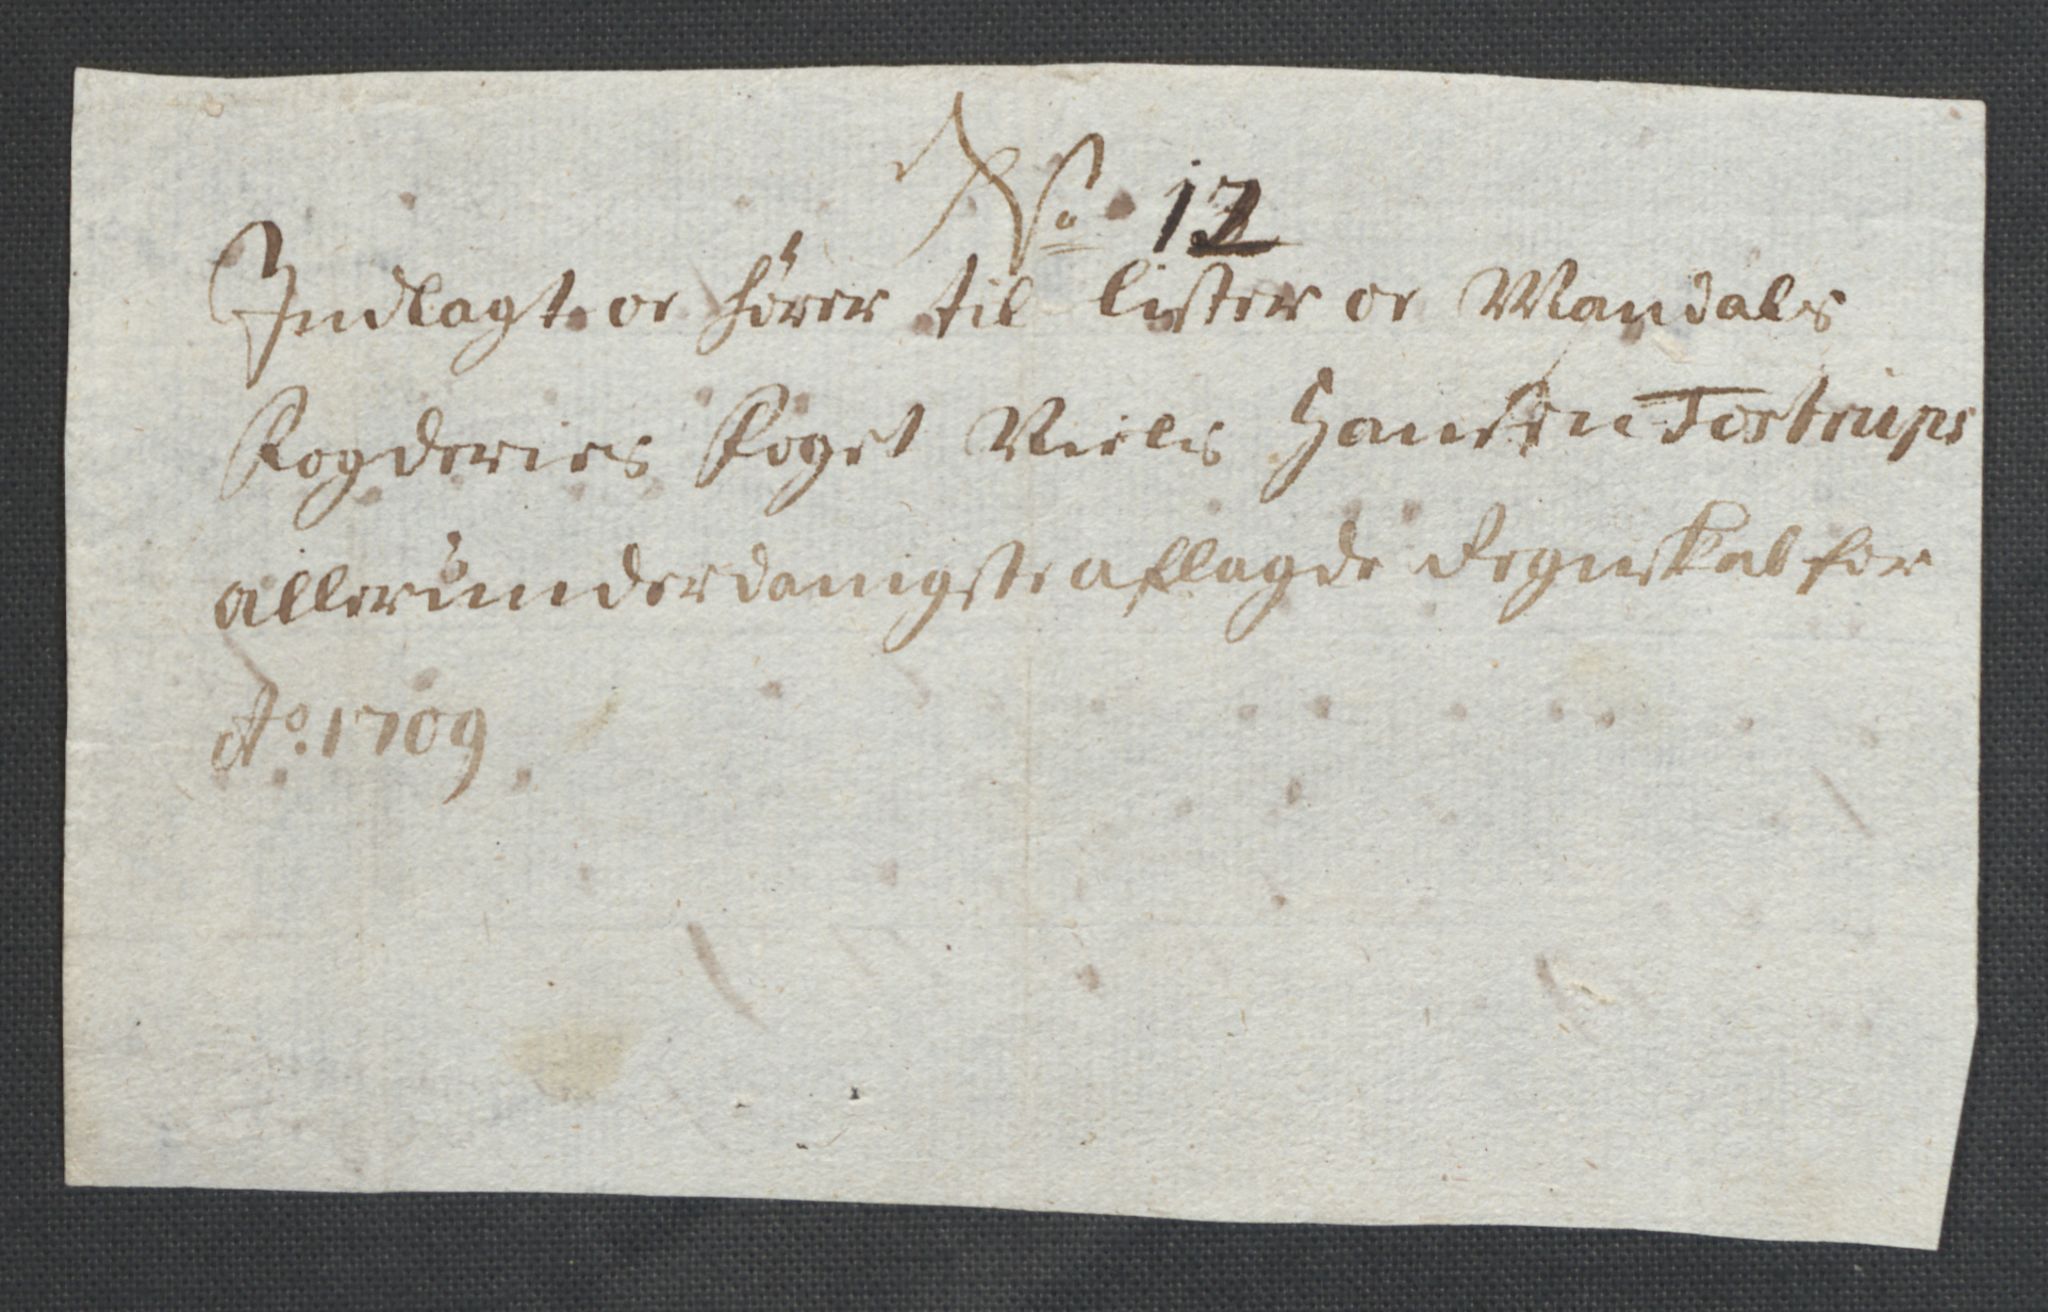 No 12
Indlagt oc hører til Lister oc Mandals
Fogderies Foget Niels Hansen Tostrups
allerunderdanigste aflagde Regnskab for
Ao. 1709